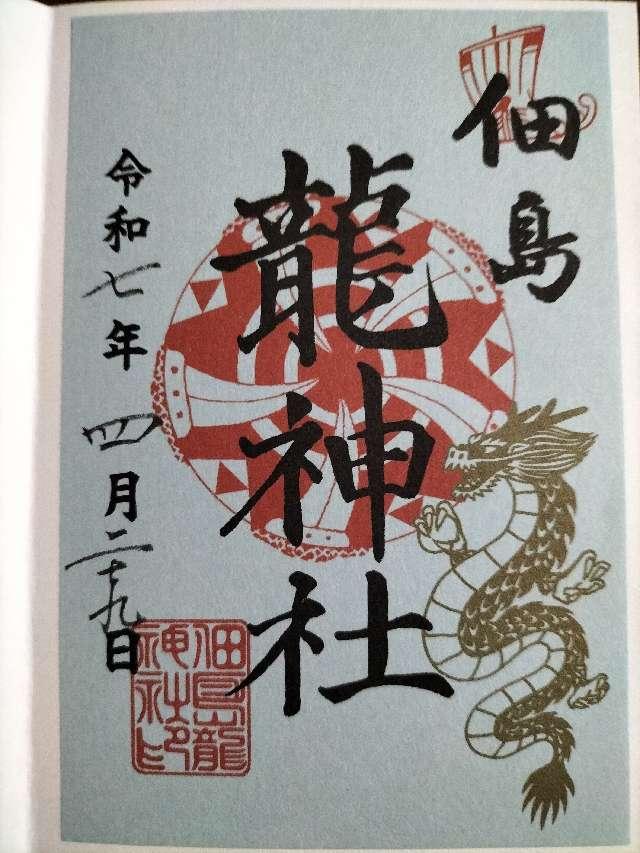 佃島
龍神社
令和七年四月二十九日
佃島龍
神社印